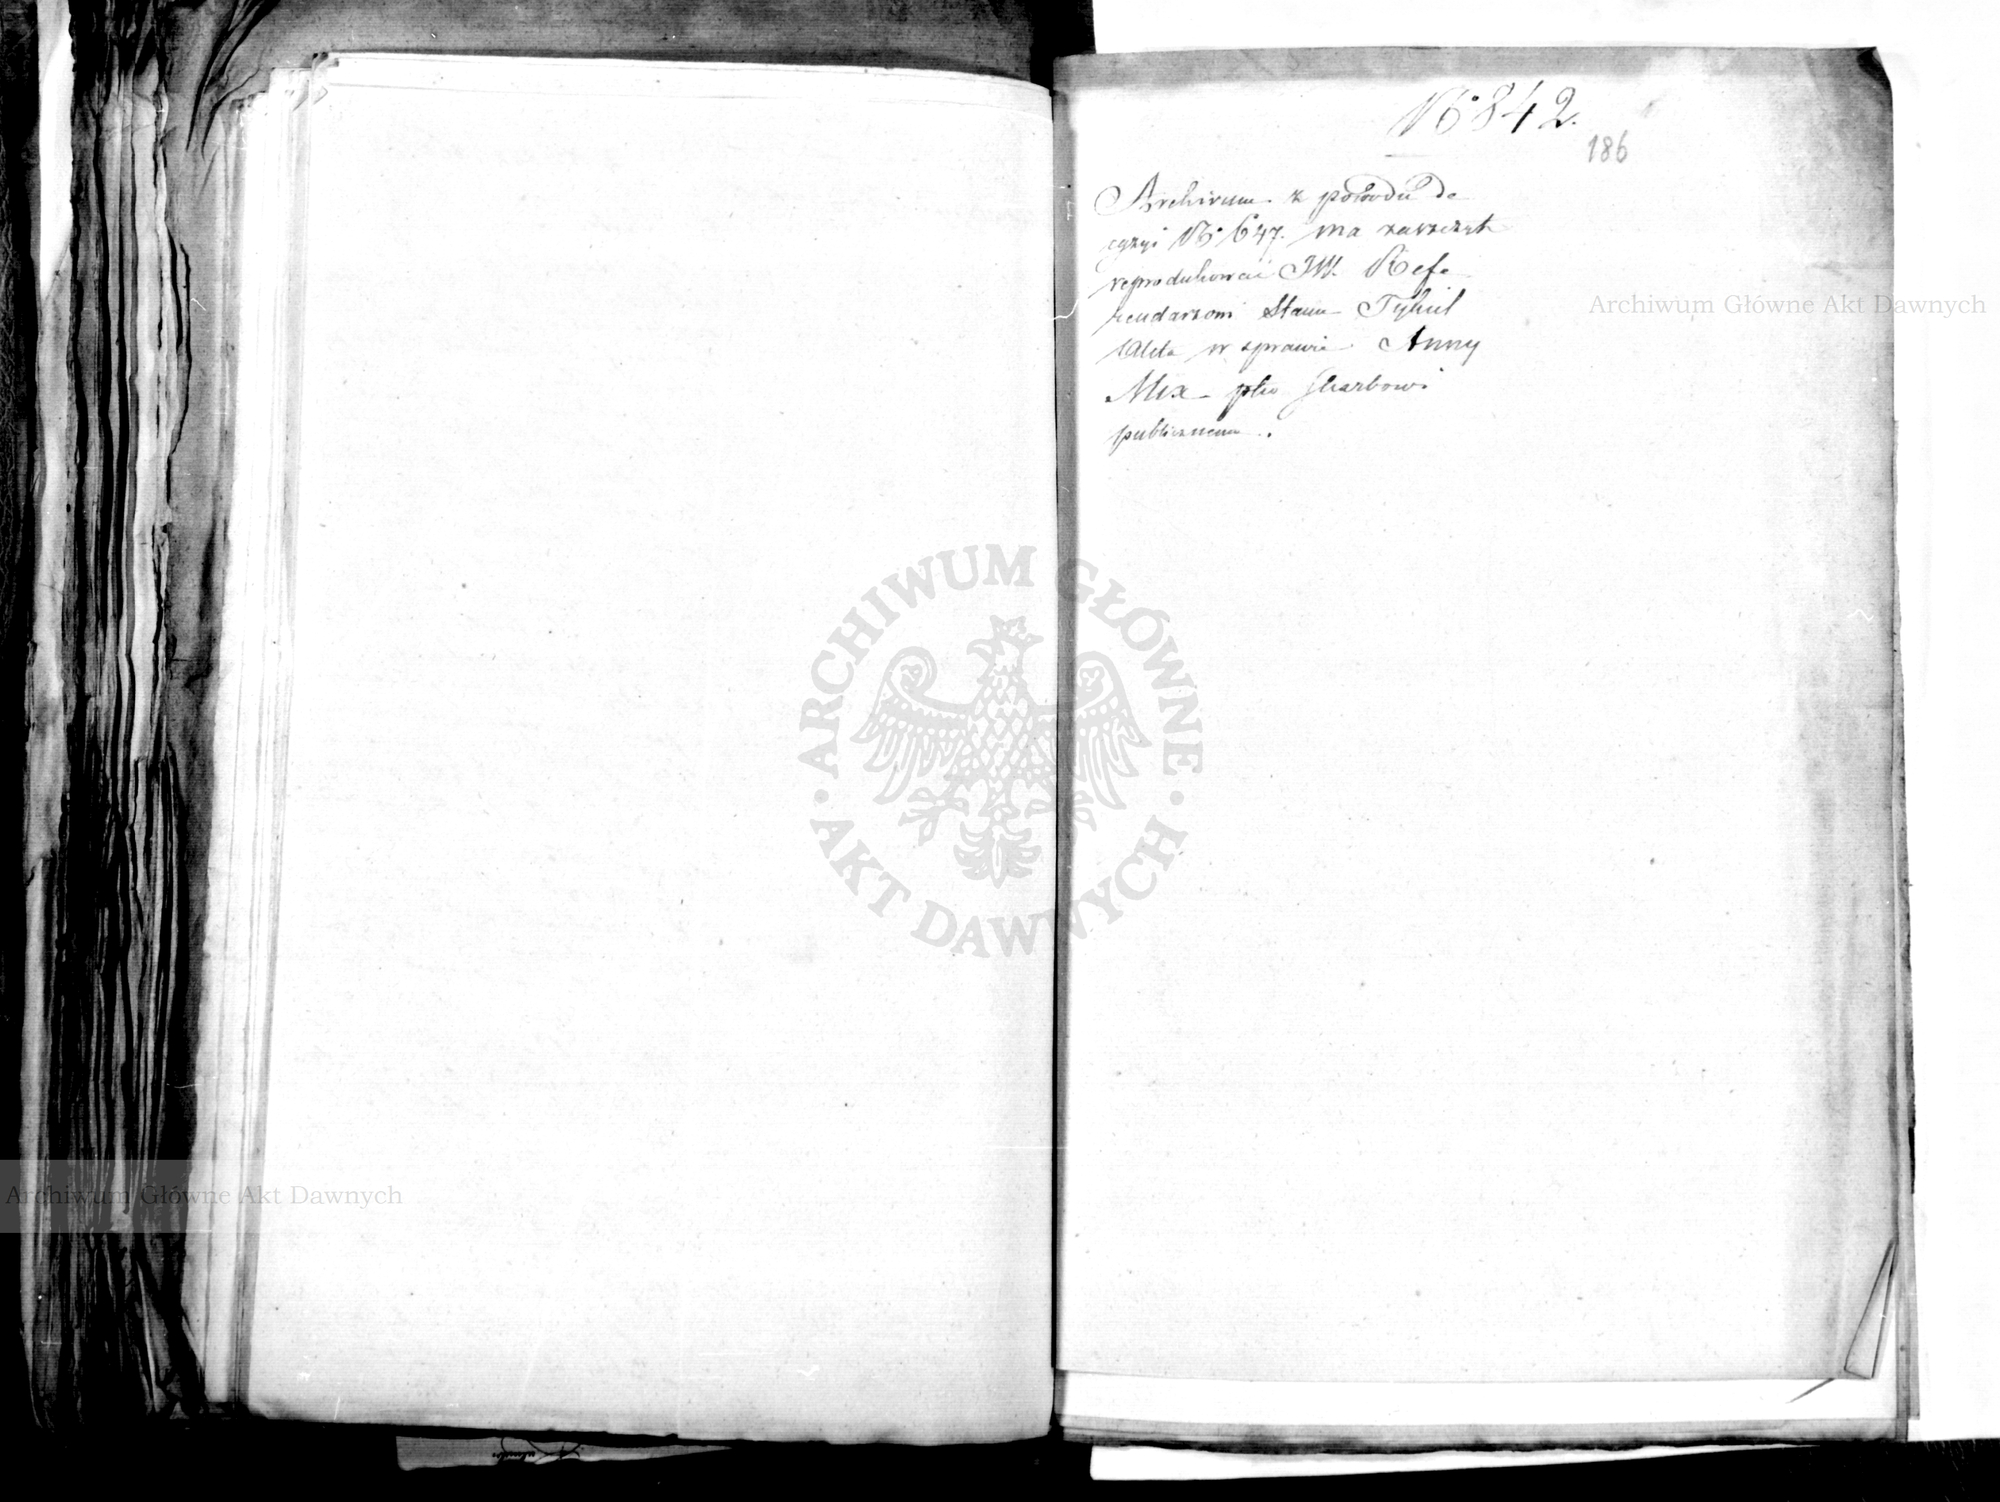 No 842.
186
Archivum z powodu de
cyzyi No 647. ma zaszczyt
reprodukować JW. Refe
rendarzowi Stanu Tykiel
Akta w sprawie Anny
Mix plko Skarbowi
publicznemu.
Archiwum Główne Akt Dawnych
ARCHIWUM GŁÓWNE
AKT DAWNYCH
Archiwum Główne Akt Dawnych